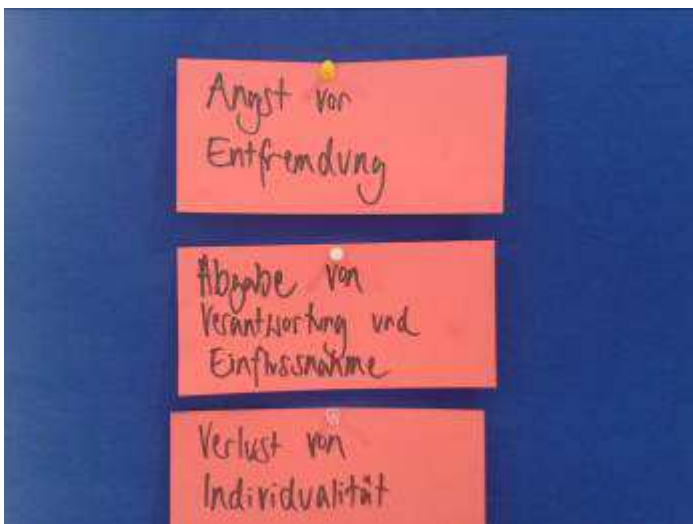 Angst vor
Entfremdung
Abgabe von
Verantwortung und
Einflussnahme
Verlust von
Individualität